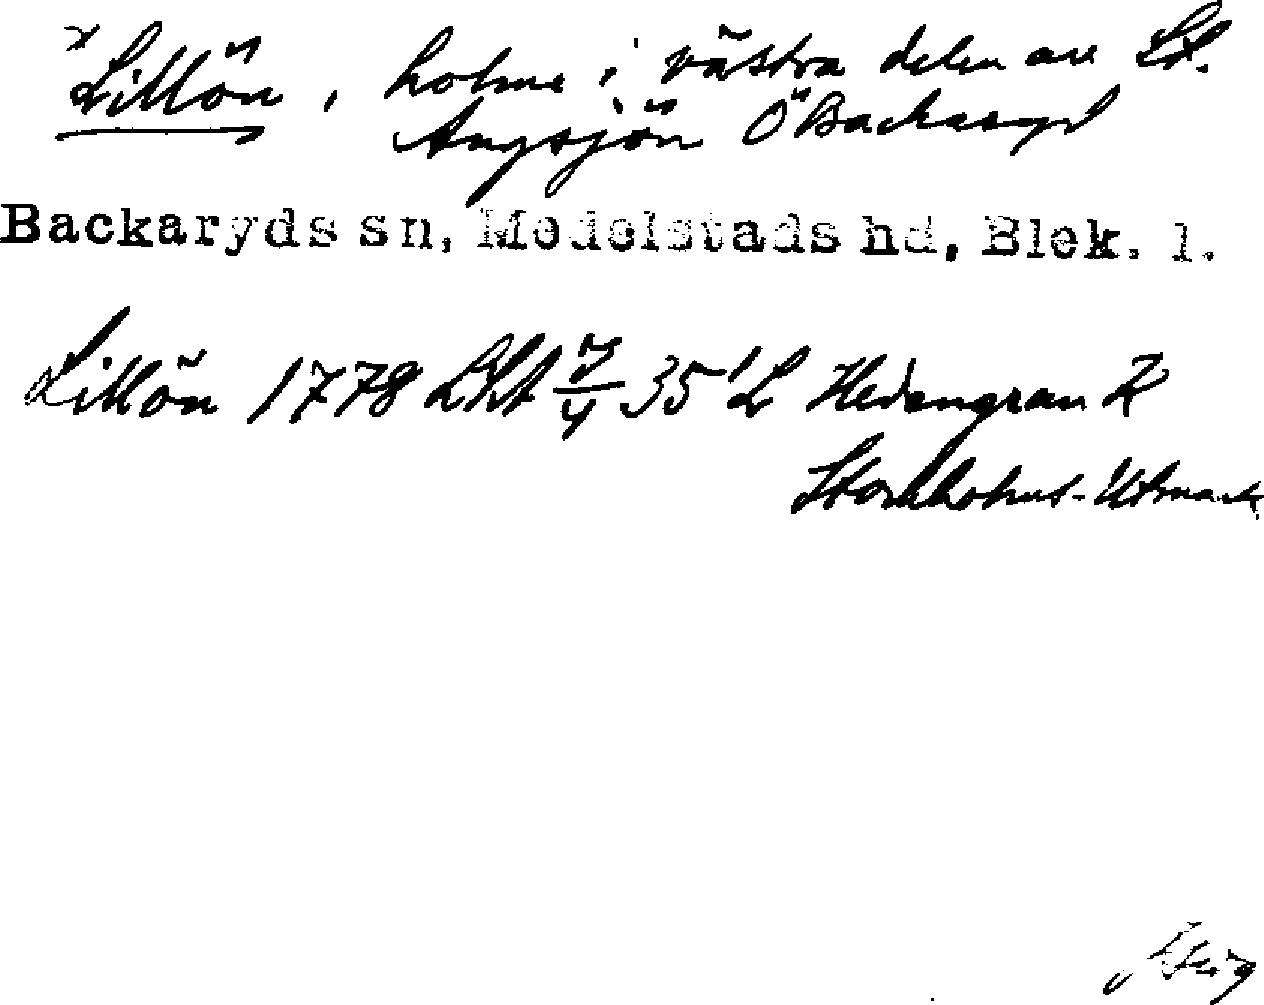 x Lillön, holme i västra delen av St.
Angsjön Ö Backaryd
Backaryds sn, Medelstads hd, Blek. l.
Lillön 1778 Lskt 35 L Hedengran K
Stockholms-Utmark